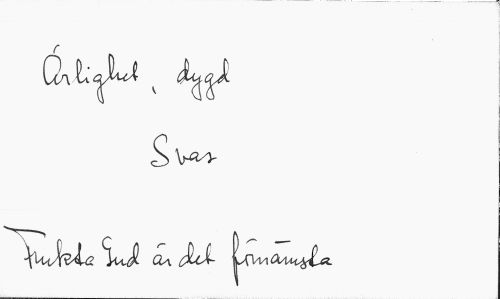 Ärlighet, dygd
Svar
Frukta Gud är det förnämsta